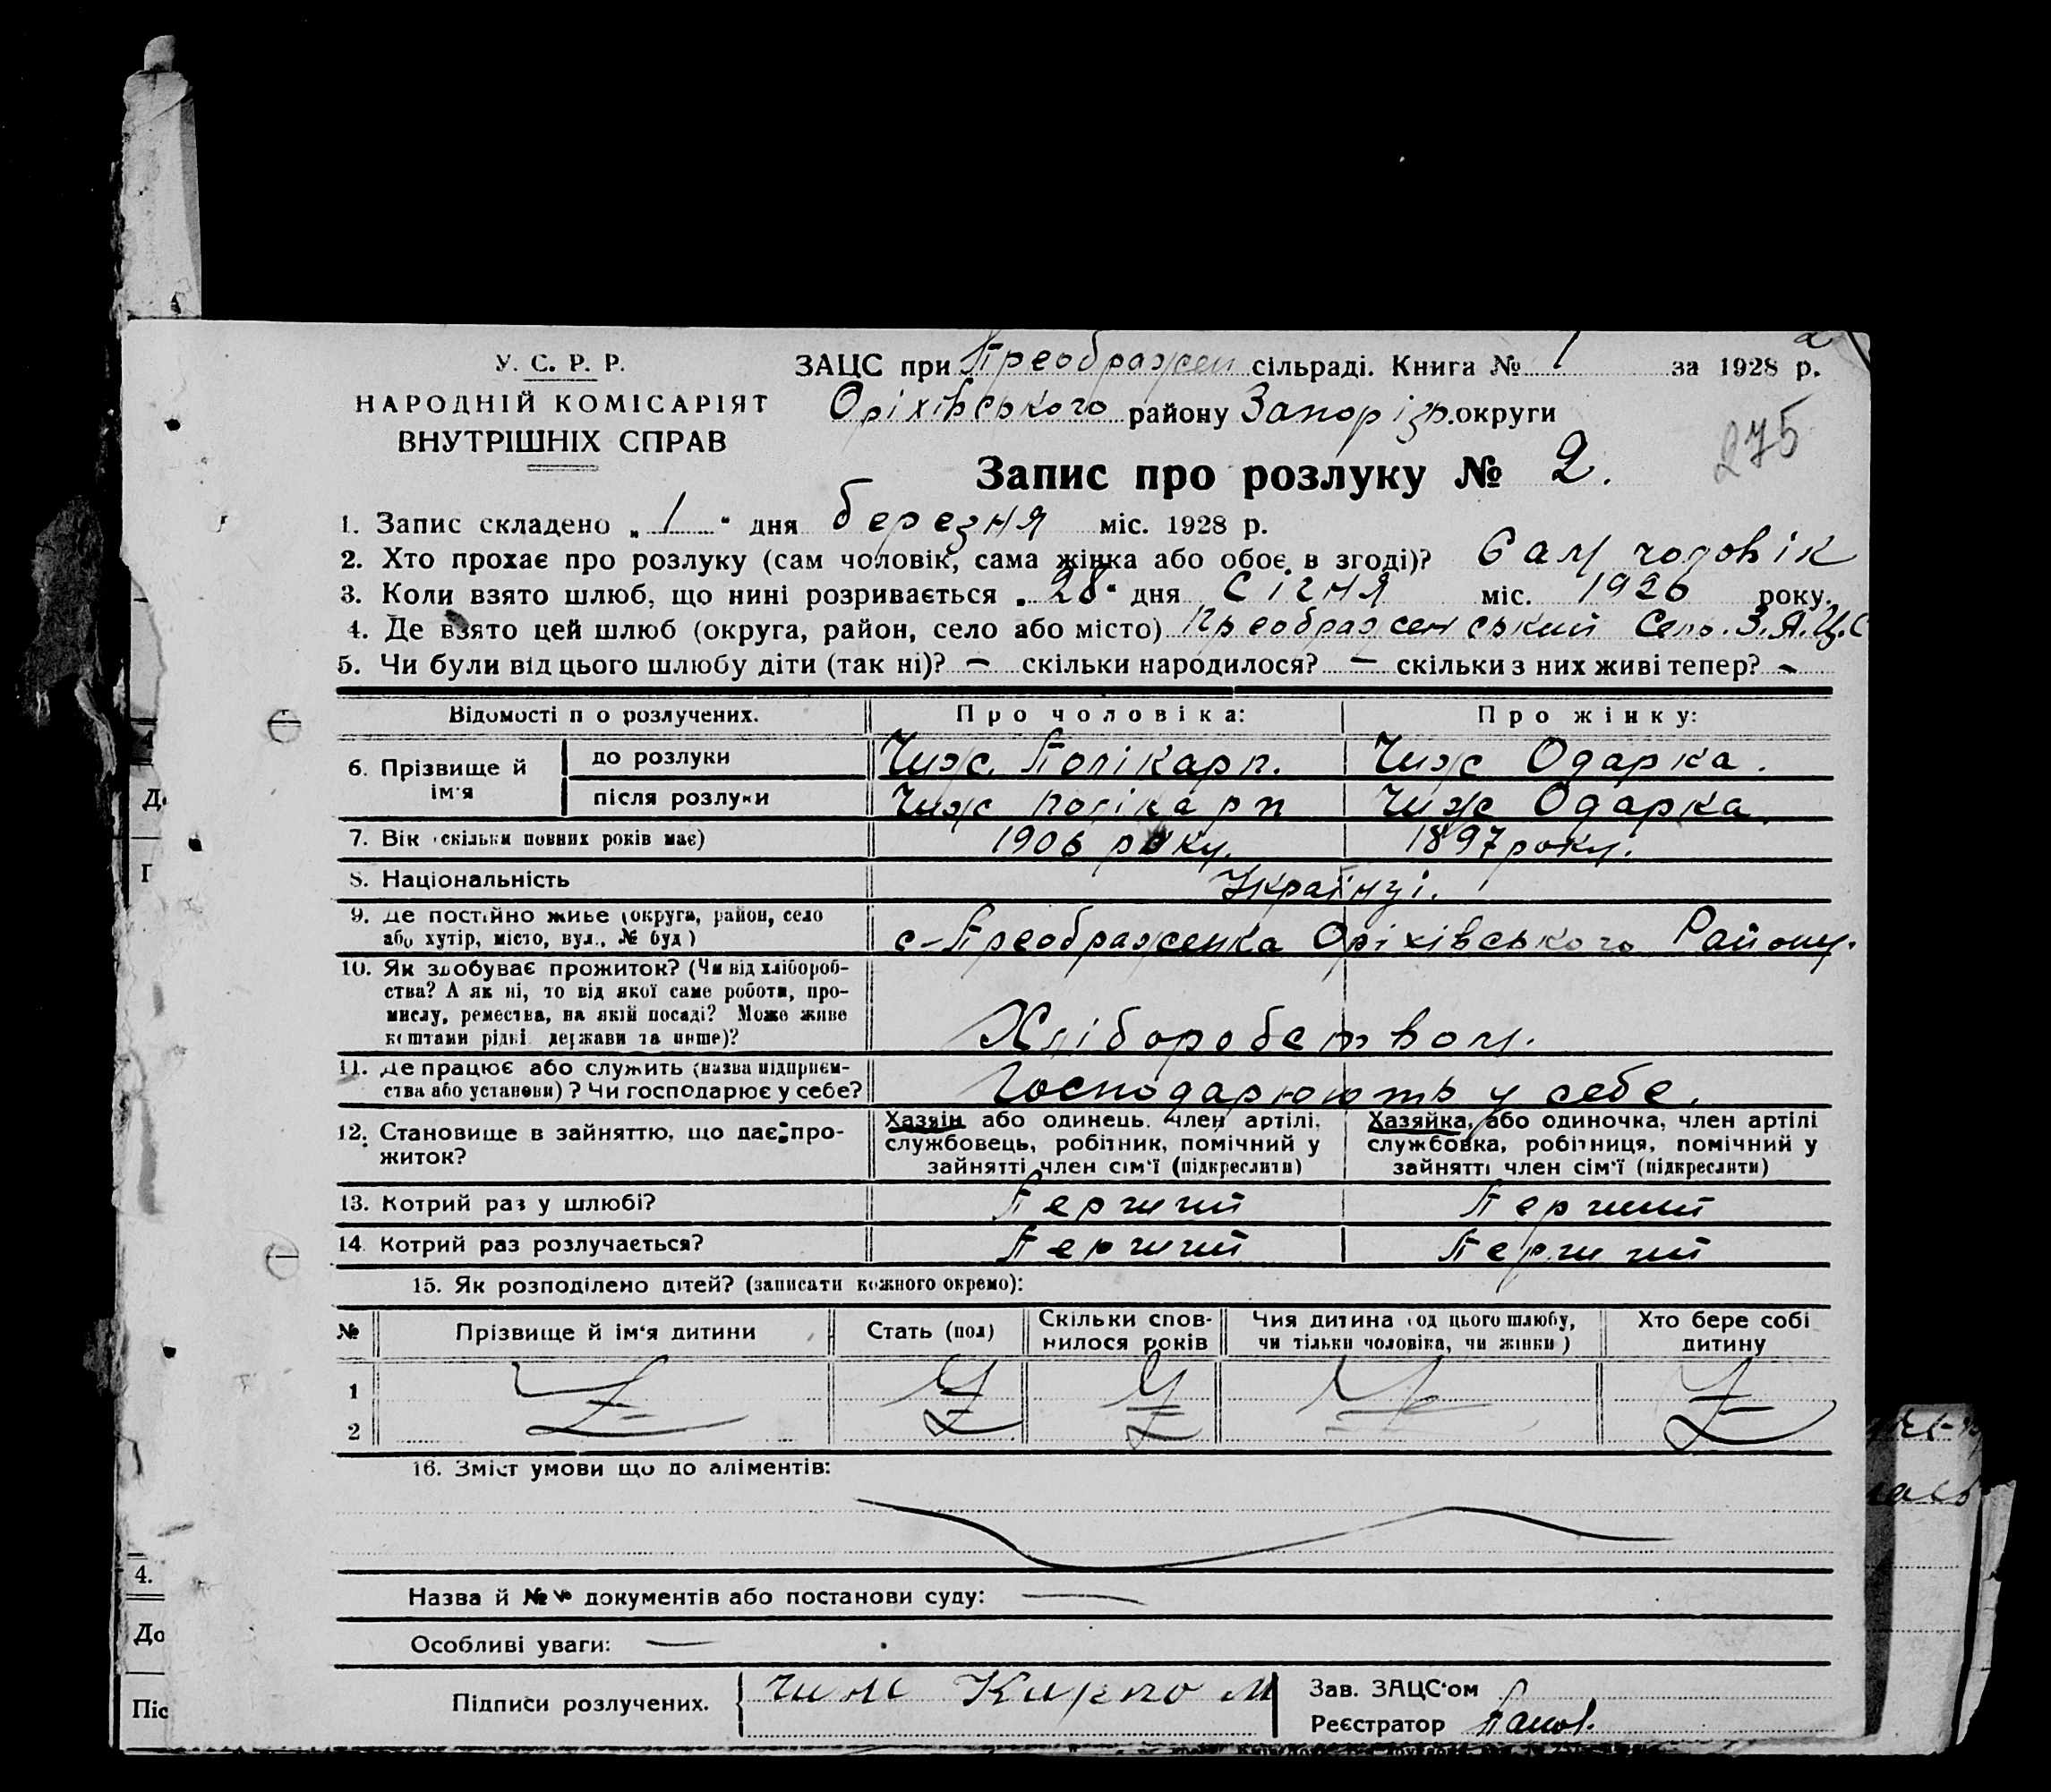 У. С. Р. Р.
НАРОДНІЙ КОМІСАРІЯТ
ВНУТРІШНІХ СПРАВ
ЗАЦС при Преображен сільраді. Книга № 1 за 1928 р.
2
Оріхівського району Запоріз. округи
275
Запис про розлуку № 2.
1. Запис складено „1" дня березня міс. 1928 р.
2. Хто прохає про розлуку (сам чоловік, сама жінка або обоє в згоді)? Сам чоловік
3. Коли взято шлюб, що нині розривається „28" дня січня міс. 1926 року.
4. Де взято цей шлюб (округа, район, село або місто) Преображенський Сель. З.А.Ц.С
5. Чи були від цього шлюбу діти (так ні)? — скільки народилося? — скільки з них живі тепер? —
Відомості по розлучених. Про чоловіка: Про жінку:
6. Прізвище й ім'я до розлуки Чиж Полікарп. Чиж Одарка.
після розлуки Чиж Полікарп Чиж Одарка.
7. Вік (скільки повних років має) 1906 року. 1897 року.
8. Національність Українці.
9. Де постійно живе (округа, район, село
або хутір, місто, вул., № буд) с-Преображенка Оріхівського Району.
10. Як здобуває прожиток? (Чи від хлібороб-
ства? А як ні, то від якої саме роботи, про-
мислу, ремества, на якій посаді? Може живе
коштами рідні державн та инше)? Хліборобством.
11. Де працює або служить (назва підприєм-
ства або установи)? Чи господарює у себе? Господарюють у себе.
12. Становище в зайняттю, що дає про-
житок?
Хазяїн або одинець. член артілі,
службовець, робітник, помічний у
зайнятті член сім'ї (підкреслити)
Хазяйка, або одиночка, член артілі
службовка, робітниця, помічний у
зайнятті член сім'ї (підкреслити)
13. Котрий раз у шлюбі? Перший Перший
14. Котрий раз розлучається? Перший Перший
15. Як розподілено дітей? (записати кожного окремо):
№ Прізвище й ім'я дитини Стать (пол) Скільки спов-
нилося років Чия дитина (од цього шлюбу,
чи тільки чоловіка, чи жінки) Хто бере собі
дитину
1
2
16. Зміст умови що до аліментів:
Назва й №№ документів або постанови суду: —
Особливі уваги: —
Підписи розлучених. Чиж
Зав. ЗАЦС'ом
Реєстратор
4.
До
Піс